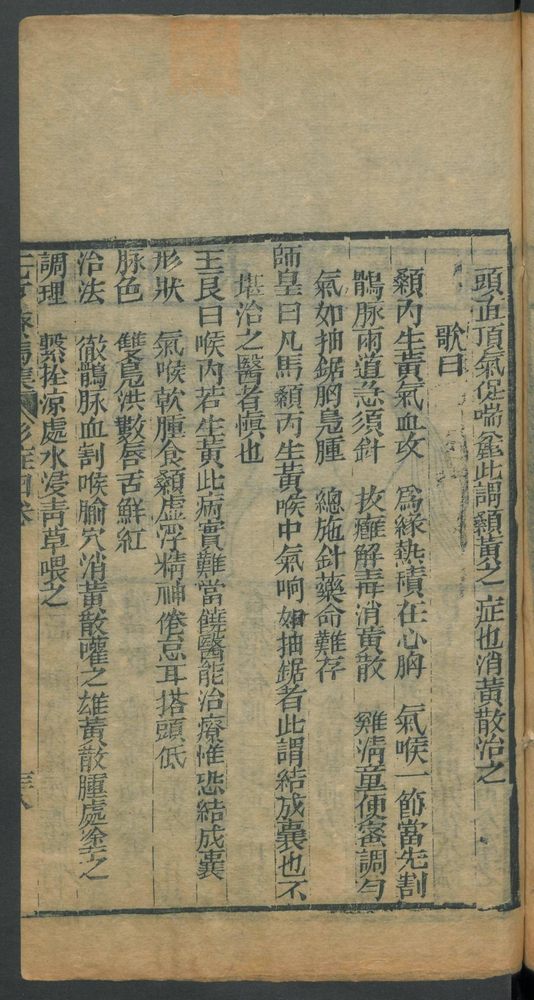 頭血頂氣促喘麄此謂顙黃之症也消黃散治之
歌曰
顙內生黃氣血攻　爲緣熱積在心胸　氣喉一節當先割
鶻脉兩道急須針　拔癰解毒消黃散　雞清童便蜜調勻
氣如抽鋸胸鳬腫　總施針藥命難存
師皇曰凡馬顙內生黃喉中氣响如抽鋸者此謂結成囊也不
堪治之醫者慎也
王良曰喉內若生黃此病實難當饒醫能治療惟恐結成囊
形狀　氣喉軟腫食顙虛浮精神倦怠耳搭頭低
脉色　雙鳬洪數唇舌鮮紅
治法　徹鶻脉血割喉腧穴消黃散嚾之雄黃散腫處塗之
調理　繫拴凉處水浸青草喂之